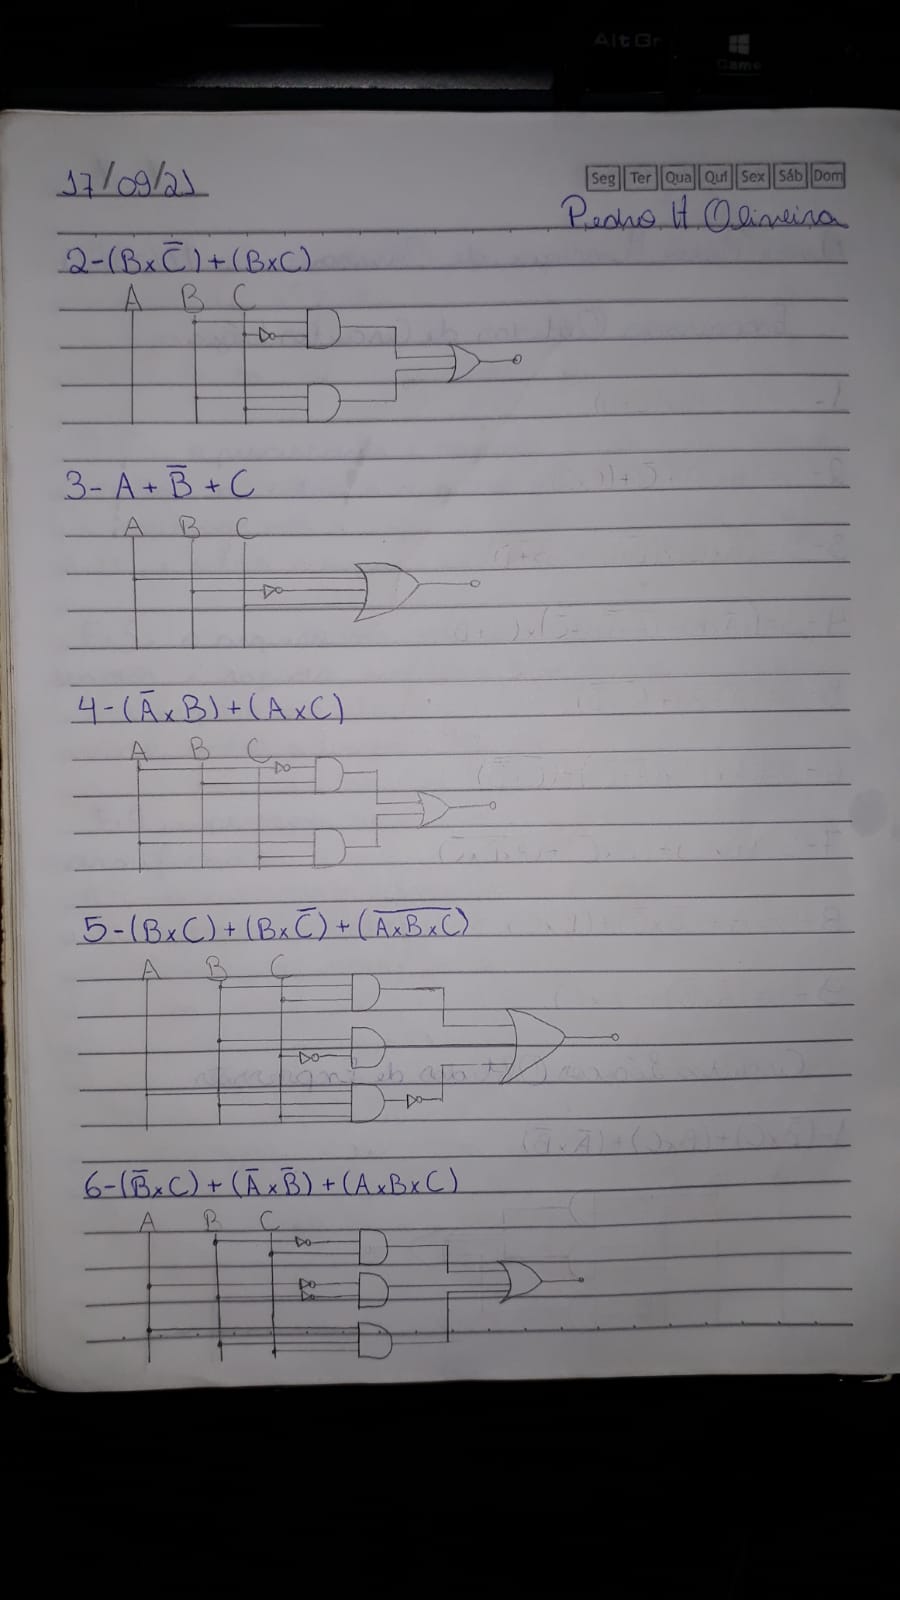 AltGr
Game
17/09/21
Seg Ter Qua Qui Sex Sáb Dom
Pedro H Oliveira
2-(BxC̅)+(BxC)
A B C
3- A + B̅ + C
A B C
4-(A̅xB)+(AxC)
A B C
5-(BxC)+(BxC̅)+(A̅x̅B̅x̅C̅)
A B C
6-(B̅xC)+(A̅xB̅)+(AxBxC)
A B C